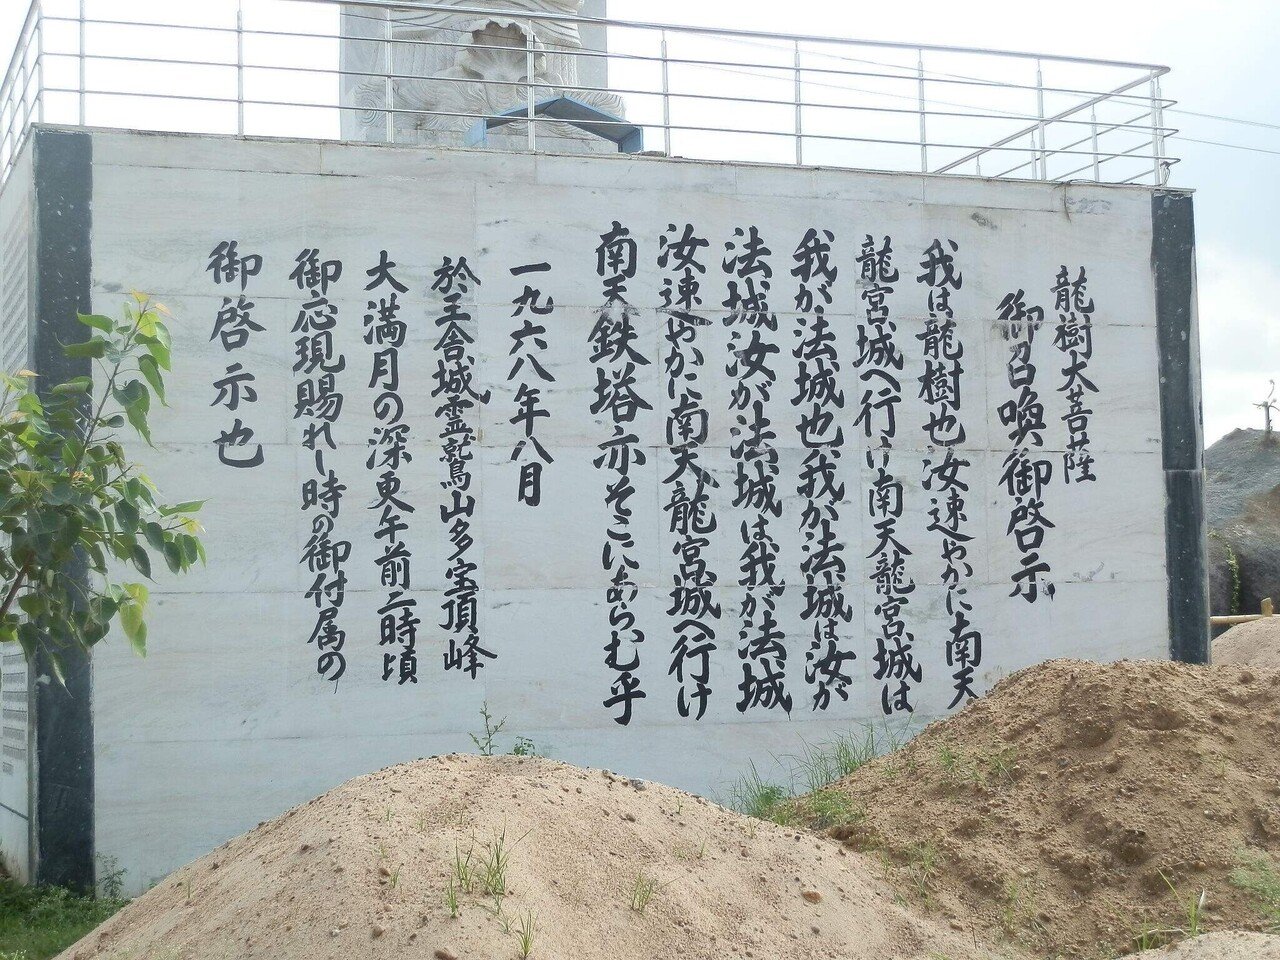 龍樹大菩薩
御召喚御啓示
我は龍樹也汝速やかに南天
龍宮城へ行け南天龍宮城は
我が法城也我が法城は汝が
法城汝が法城は我が法城
汝速やかに南天龍宮城へ行け
南天鉄塔亦そこにあらむ乎
一九六八年八月
於王舎城霊鷲山多宝頂峰
大満月の深更午前二時頃
御応現賜れし時の御付属の
御啓示也